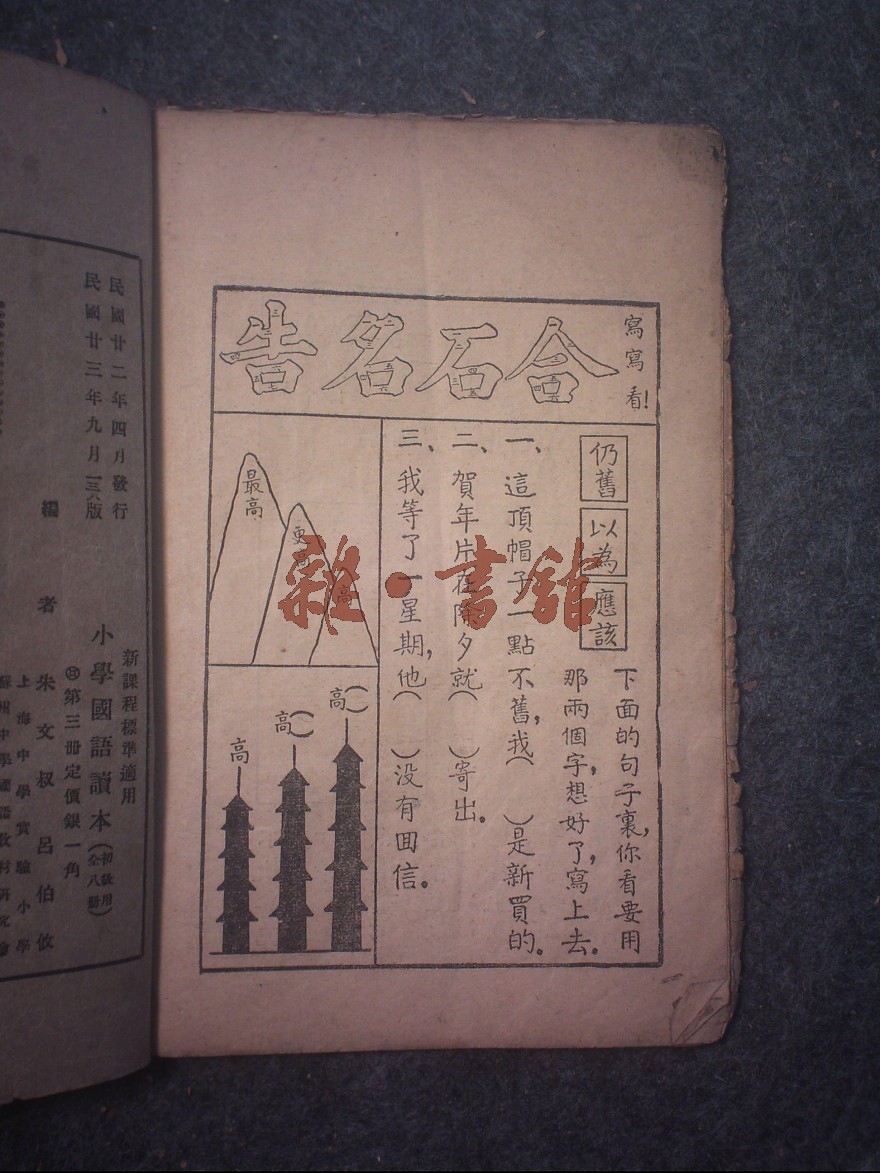 寫寫看!
合石名告
仍舊
以為
應該
下面的句子裏,你看要用
那兩個字,想好了,寫上去。
一、這頂帽子一點不舊,我( )是新買的。
二、賀年片在除夕就( )寄出。
三、我等了一星期,他( )没有回信。
最高
更高
高
高( )
高( )
高
雜·書館
新課程標準適用
小學國語讀本(初級用全八冊)
第三冊定價銀一角
民國廿二年四月發行
民國廿三年九月一三六版
編者 朱文叔 呂伯攸
上海中學實驗小學
蘇州中學國語教材研究會